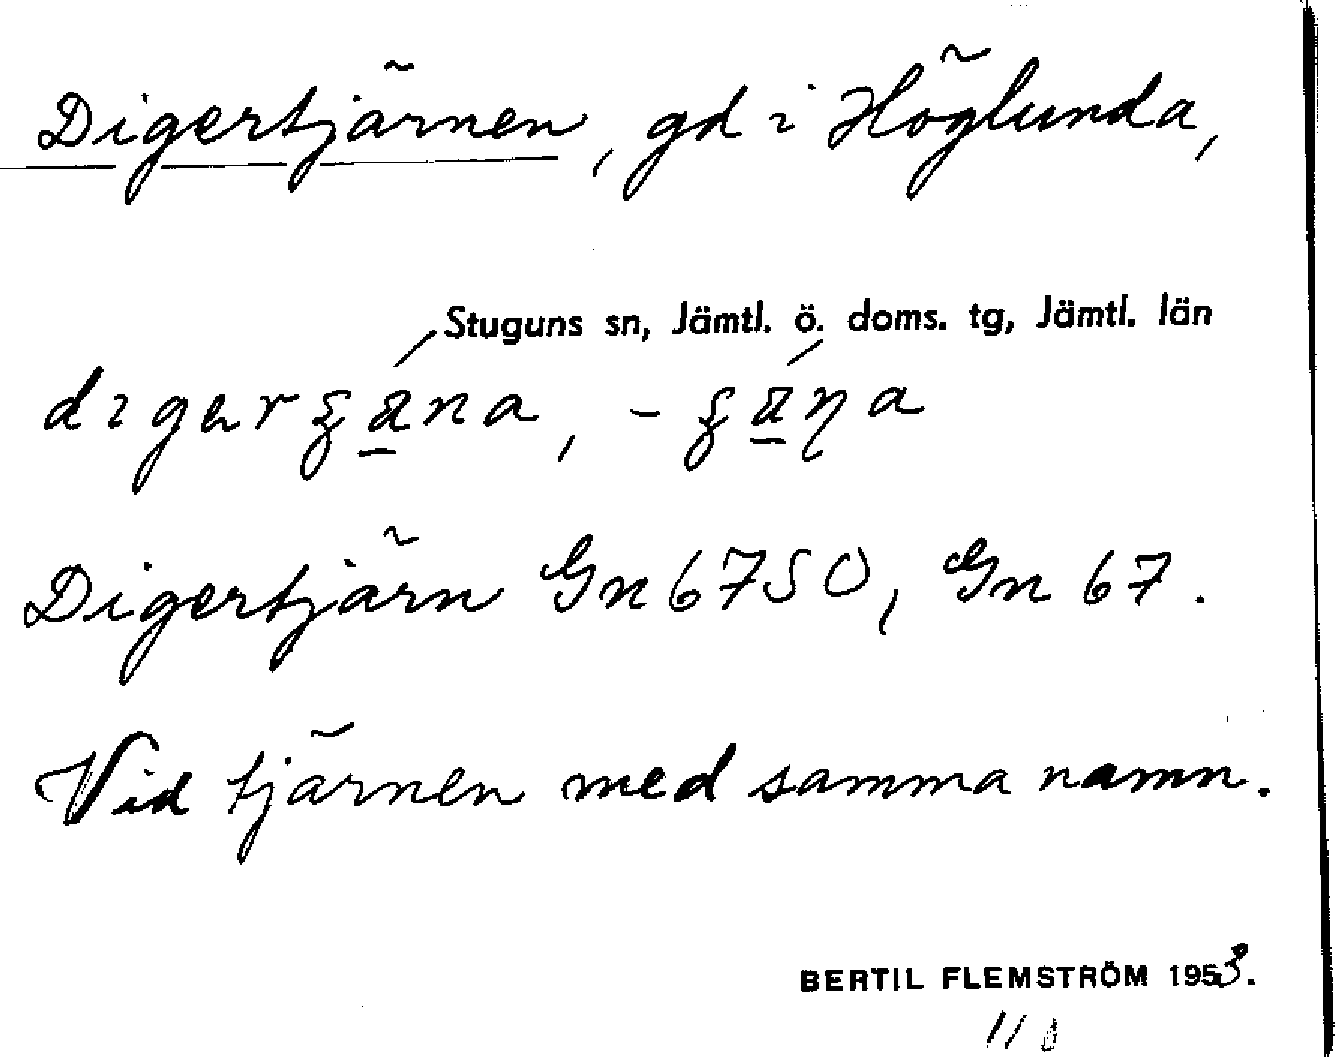 Digertjärnen, gd i Höglunda,
Stuguns sn, Jämtl. ö. doms. tg, Jämtl. län
Digertjärn Gn 67 50, Gn 67.
Vid tjärnen med samma namn.
BERTIL FLEMSTRÖM 1953.